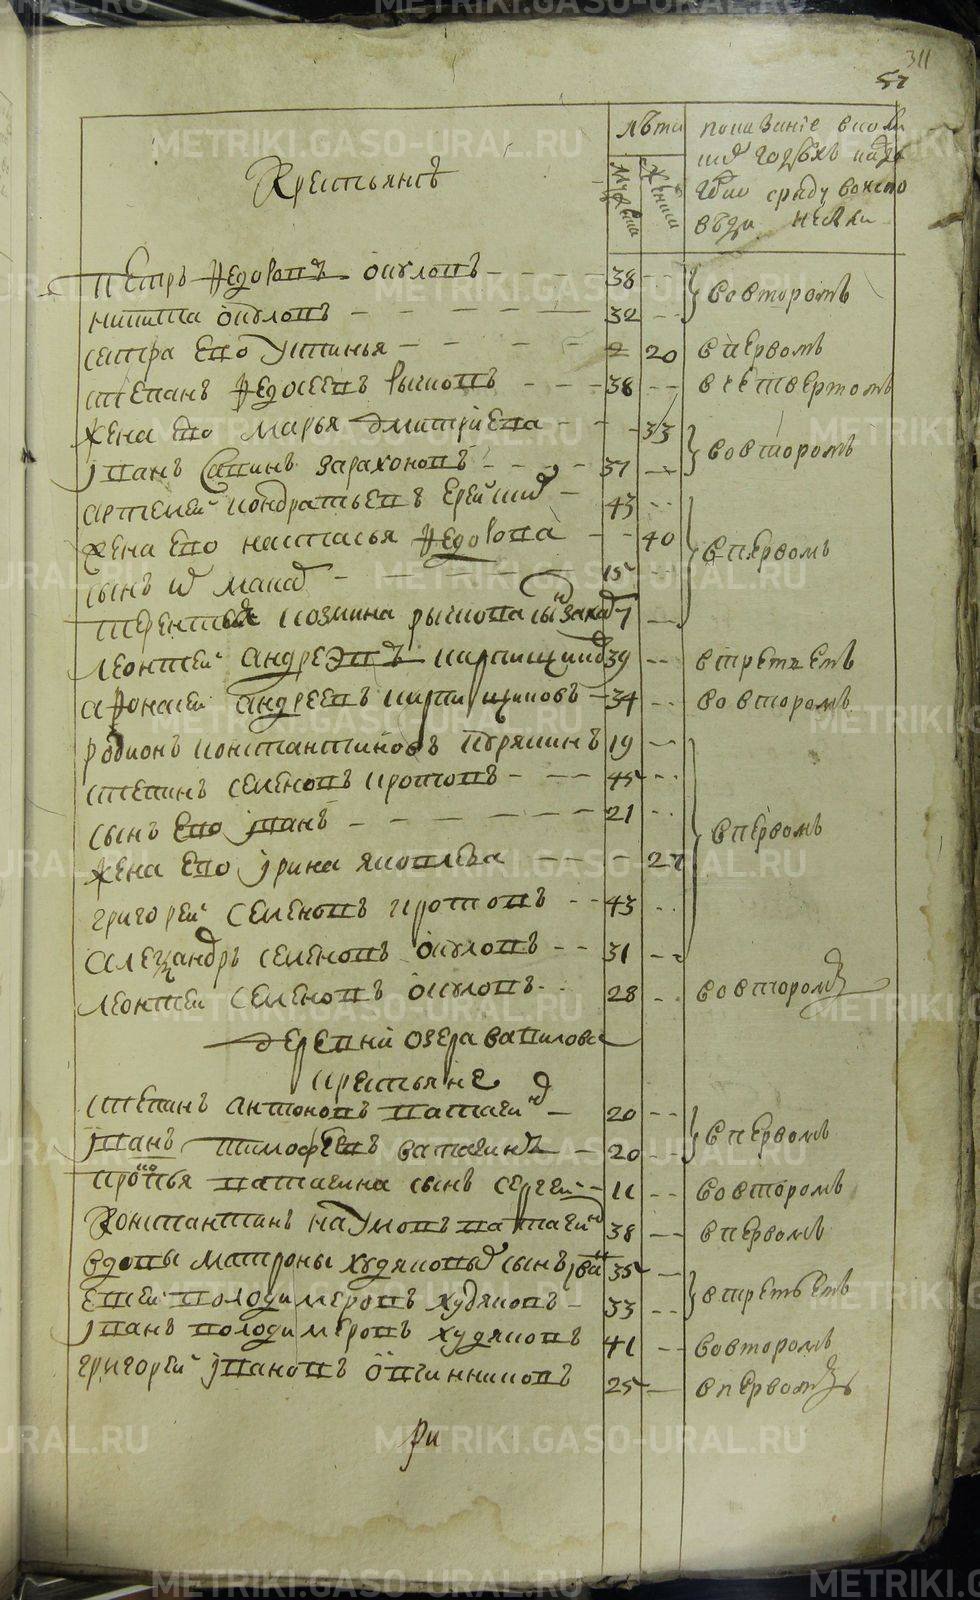 311
57
Крестьянъ
лѣта
мужеска
женска
петръ Федоровъ окуловъ 38 во второмъ
никита окуловъ 32
сестра ево устинья 20 в первомъ
степанъ Федосеевъ рычковъ 38 в четвертомъ
жена ево марья дмитриева 33 во второмъ
иванъ савинъ 37
артемей кондратьевъ 43
жена ево настасья Федорова 40 в первомъ
сынъ 15
козмина рычкова сынъ захаръ 7
леонтей андреевъ кирпищиковъ 39 в третьемъ
афонасей андреевъ кирпищиковъ 34 во второмъ
родионъ константиновъ 19
степанъ семеновъ кротовъ 45
сынъ ево иванъ 21 в первомъ
жена ево ирина яковлева 27
григорей семеновъ кротовъ 43
александръ семеновъ окуловъ 31
леонтей семеновъ окуловъ 28 во второмъ
деревни озера вавилова
крестьяне
степанъ антоновъ ватагинъ 20 в первомъ
иванъ тимофеевъ ватагинъ 20
прокопья ватагина сынъ сергей 11 во второмъ
Константинъ наумовъ ватагинъ 38 в первомъ
вдовы матроны худяковы сынъ 35 в третьемъ
евсей володимеровъ худяковъ 33
иванъ володимеровъ худяковъ 41 во второмъ
григорей ивановъ овчинниковъ 25 в первомъ
METRIKI.GASO-URAL.RU